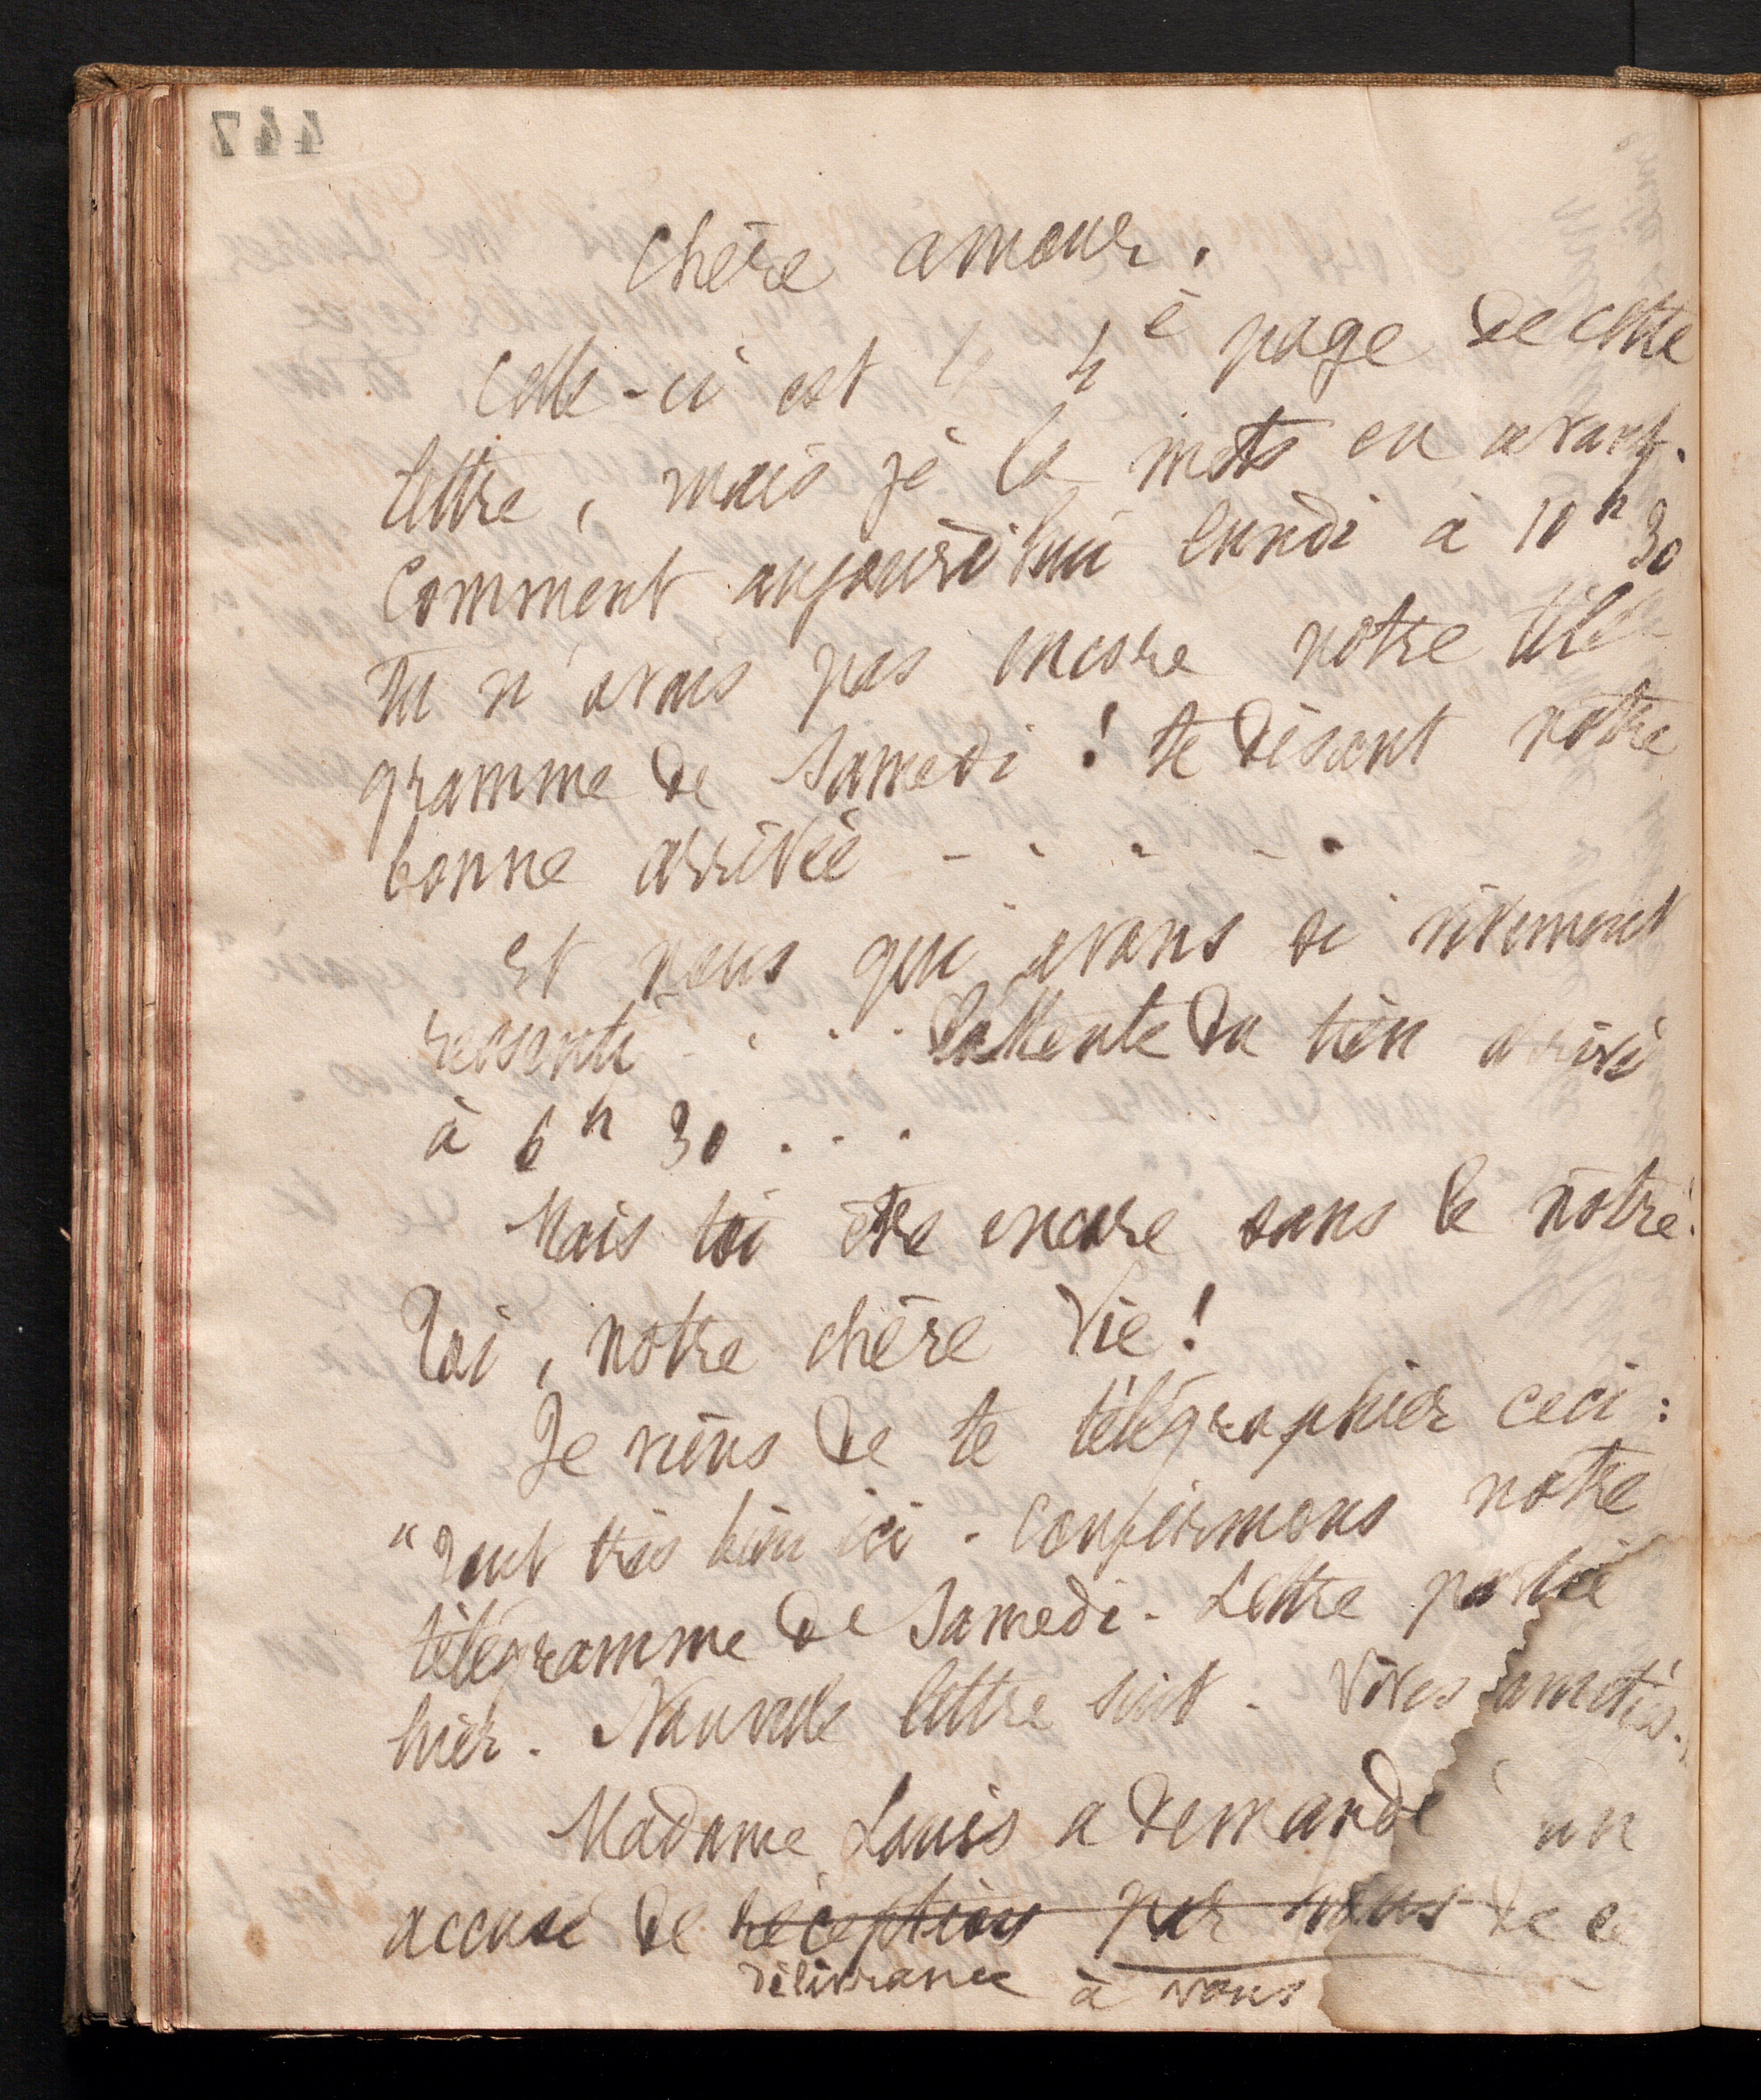 447
Chère amour.
Celle-ci est la 4e page de cette
lettre, mais je la mets en avant.
Comment aujourd'hui lundi à 10h 30
Tu n'avais pas encore notre télé
gramme de Samedi ! te disant notre
bonne arrivée - . . - .
Et nous qui avons si vivement
ressenti - . . . l'attente du tien arrivé
à 6h 30 . . .
Mais toi être encore sans le nôtre!
Toi, notre chère Vie!
Je viens de te télégraphier ceci :
"Tout très bien ici . Confirmons notre
télégramme de Samedi - Lettre partie
hier . Nouvelle lettre suit - Vives amitiés."
Madame Louis a demandé un
accusé de réception par nous de ce
délivrance à vous